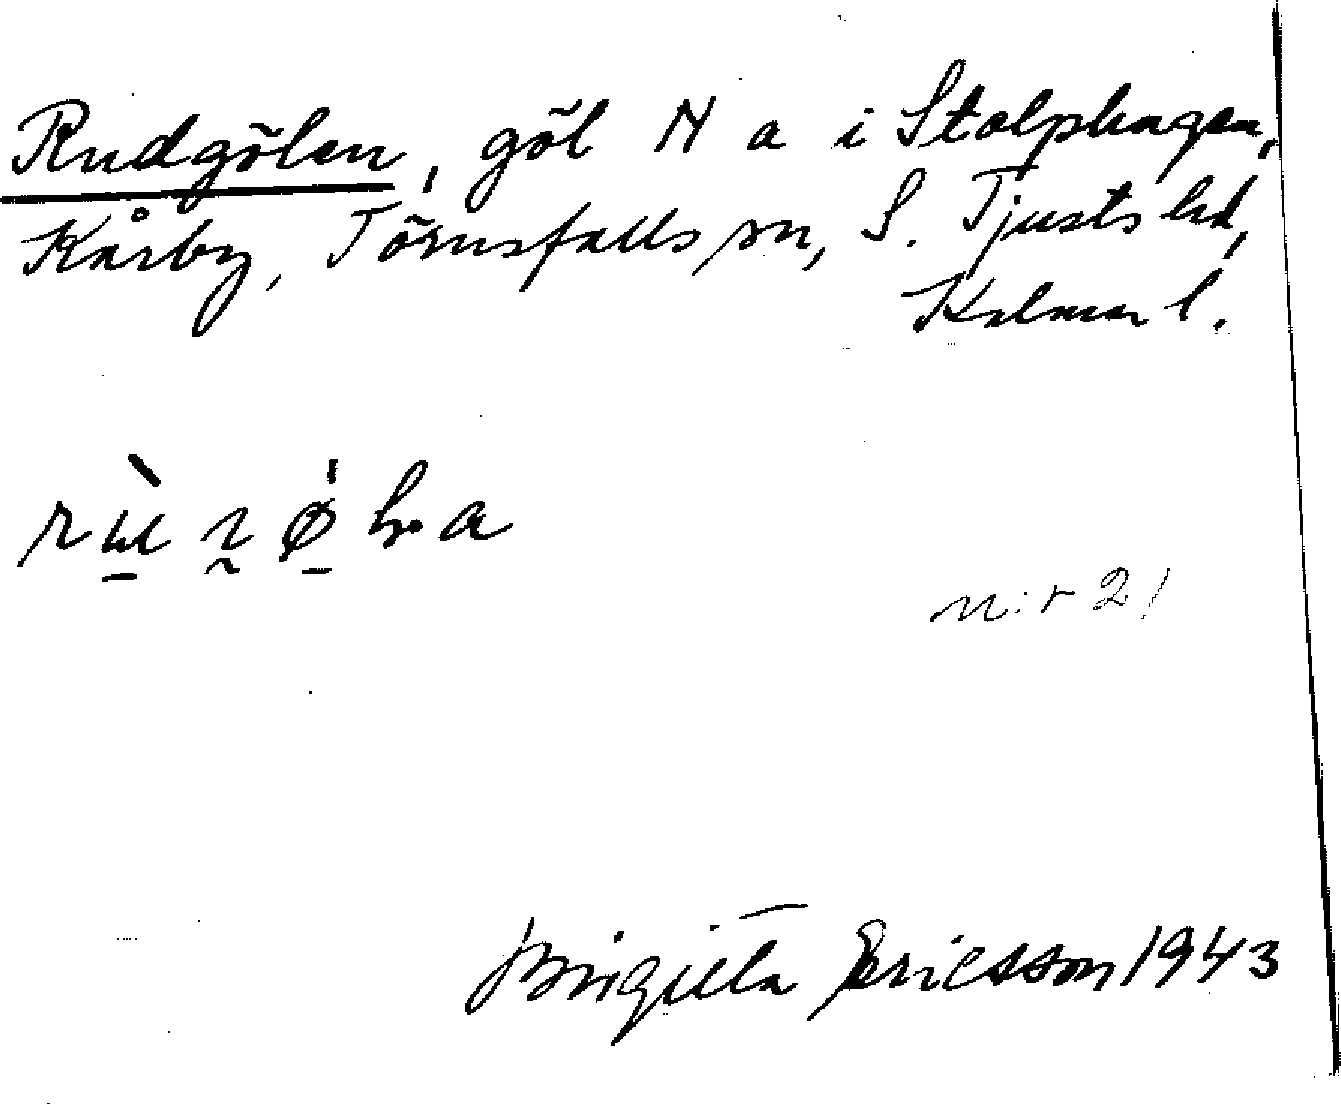 Rudgölen, göl N a i Stolphagen,
Kårby, Törnsfalls sn, S. Tjusts hd,
Kalmar l.
n:r 21
Birgitta Ericsson 1943